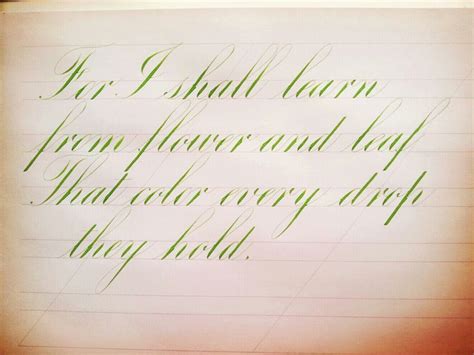 For I shall learn
from flower and leaf
That color every drop
they hold.